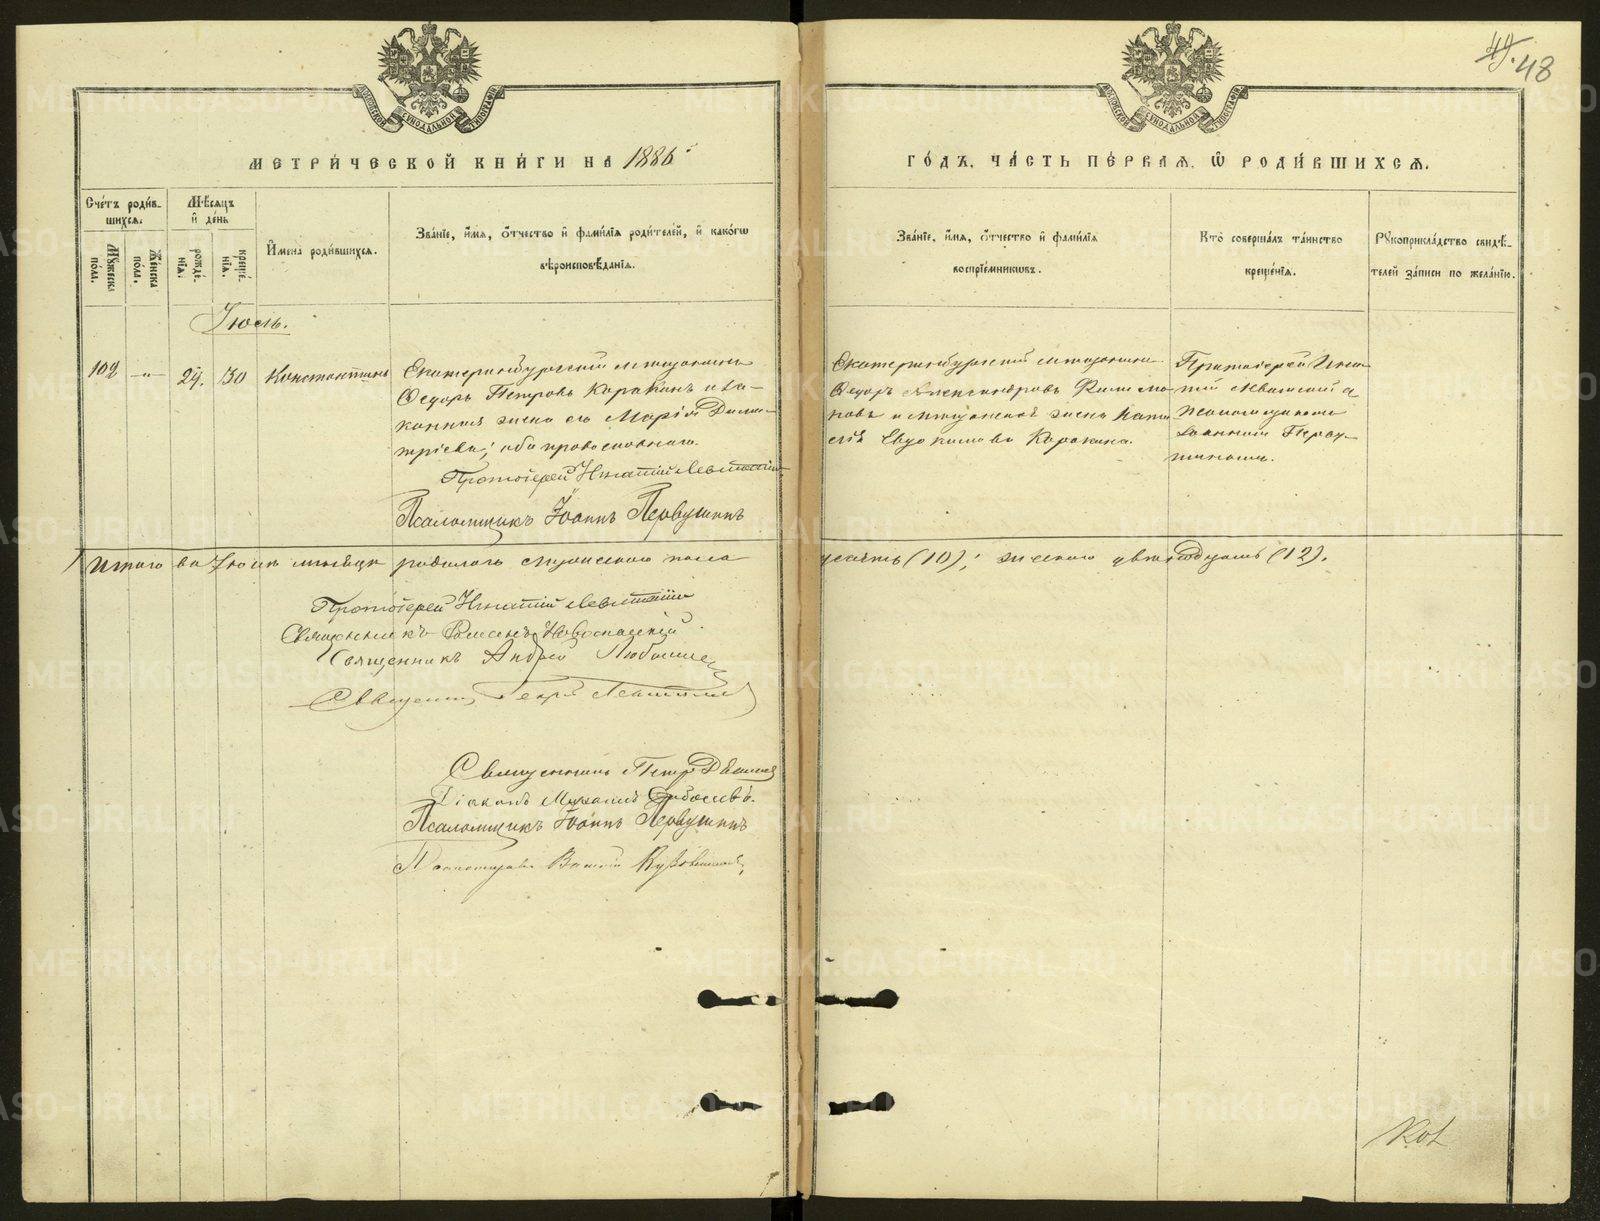 49. 48
МЕТРИ́ЧЕСКОЙ КНИ́ГИ НА 1886
ГО́ДЪ, ЧА́СТЬ ПЕ́РВАЯ, Ѡ РОДИ́ВШИХСЯ.
Сче́тъ роди́в-
шихся.
Му́жеска по́ла.
Же́нска по́ла.
Мѣ́сяцъ и҆ де́нь
рожде́нїя.
креще́нїя.
И҆мена̀ роди́вшихся.
Зва́нїе, и҆́мя, ѻ҆́тчество и҆ фами́лїя роди́телей, и҆ како́гѡ
вѣроисповѣ́данїя.
Зва́нїе, и҆́мя, ѻ҆́тчество и҆ фами́лїя
воспрїе́мникѡвъ.
Кто̀ соверша́лъ та́инство
креще́нїя.
Рꙋкоприкла́дство свидѣ́-
телей за́писи по жела́нїю.
Іюль.
102 —„— 29. 30 Константинъ
Екатеринбургскій мѣщанинъ
Ѳедоръ Петровъ Каракинъ и за-
конная жена его Марія Дими-
тріева; оба православнаго.
Протоіерей Игнатій Левитскій
Псаломщикъ Іоаннъ Первушинъ
Екатеринбургскій мѣщанинъ
Ѳедоръ Александровъ Филимо-
новъ и мѣщанская жена
Евдокимова Каракина.
Протоіерей Игна-
тій Левитскій съ
псаломщикомъ
Іоанномъ Перву-
шинымъ.
Итого въ Іюлѣ мѣсяцѣ родилось мужескаго пола
десять (10), женскаго двѣнадцать (12).
Протоіерей Игнатій Левитскій
Священникъ Романъ Новоспасскій
Священникъ Андрей
Священникъ
Священникъ Петръ
Діаконъ Михаилъ
Псаломщикъ Іоаннъ Первушинъ
METRIKI.GASO-URAL.RU